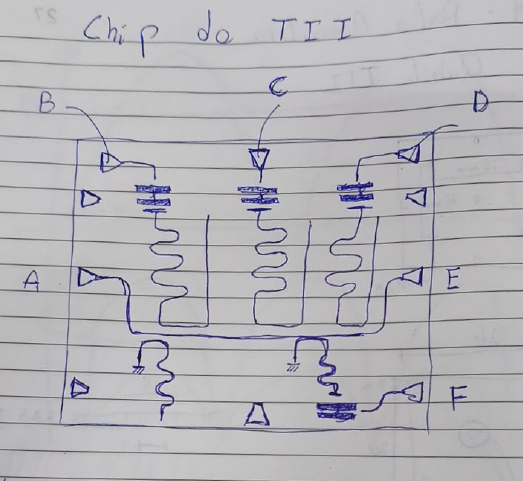 Chip do TII
C
B
D
A
E
F